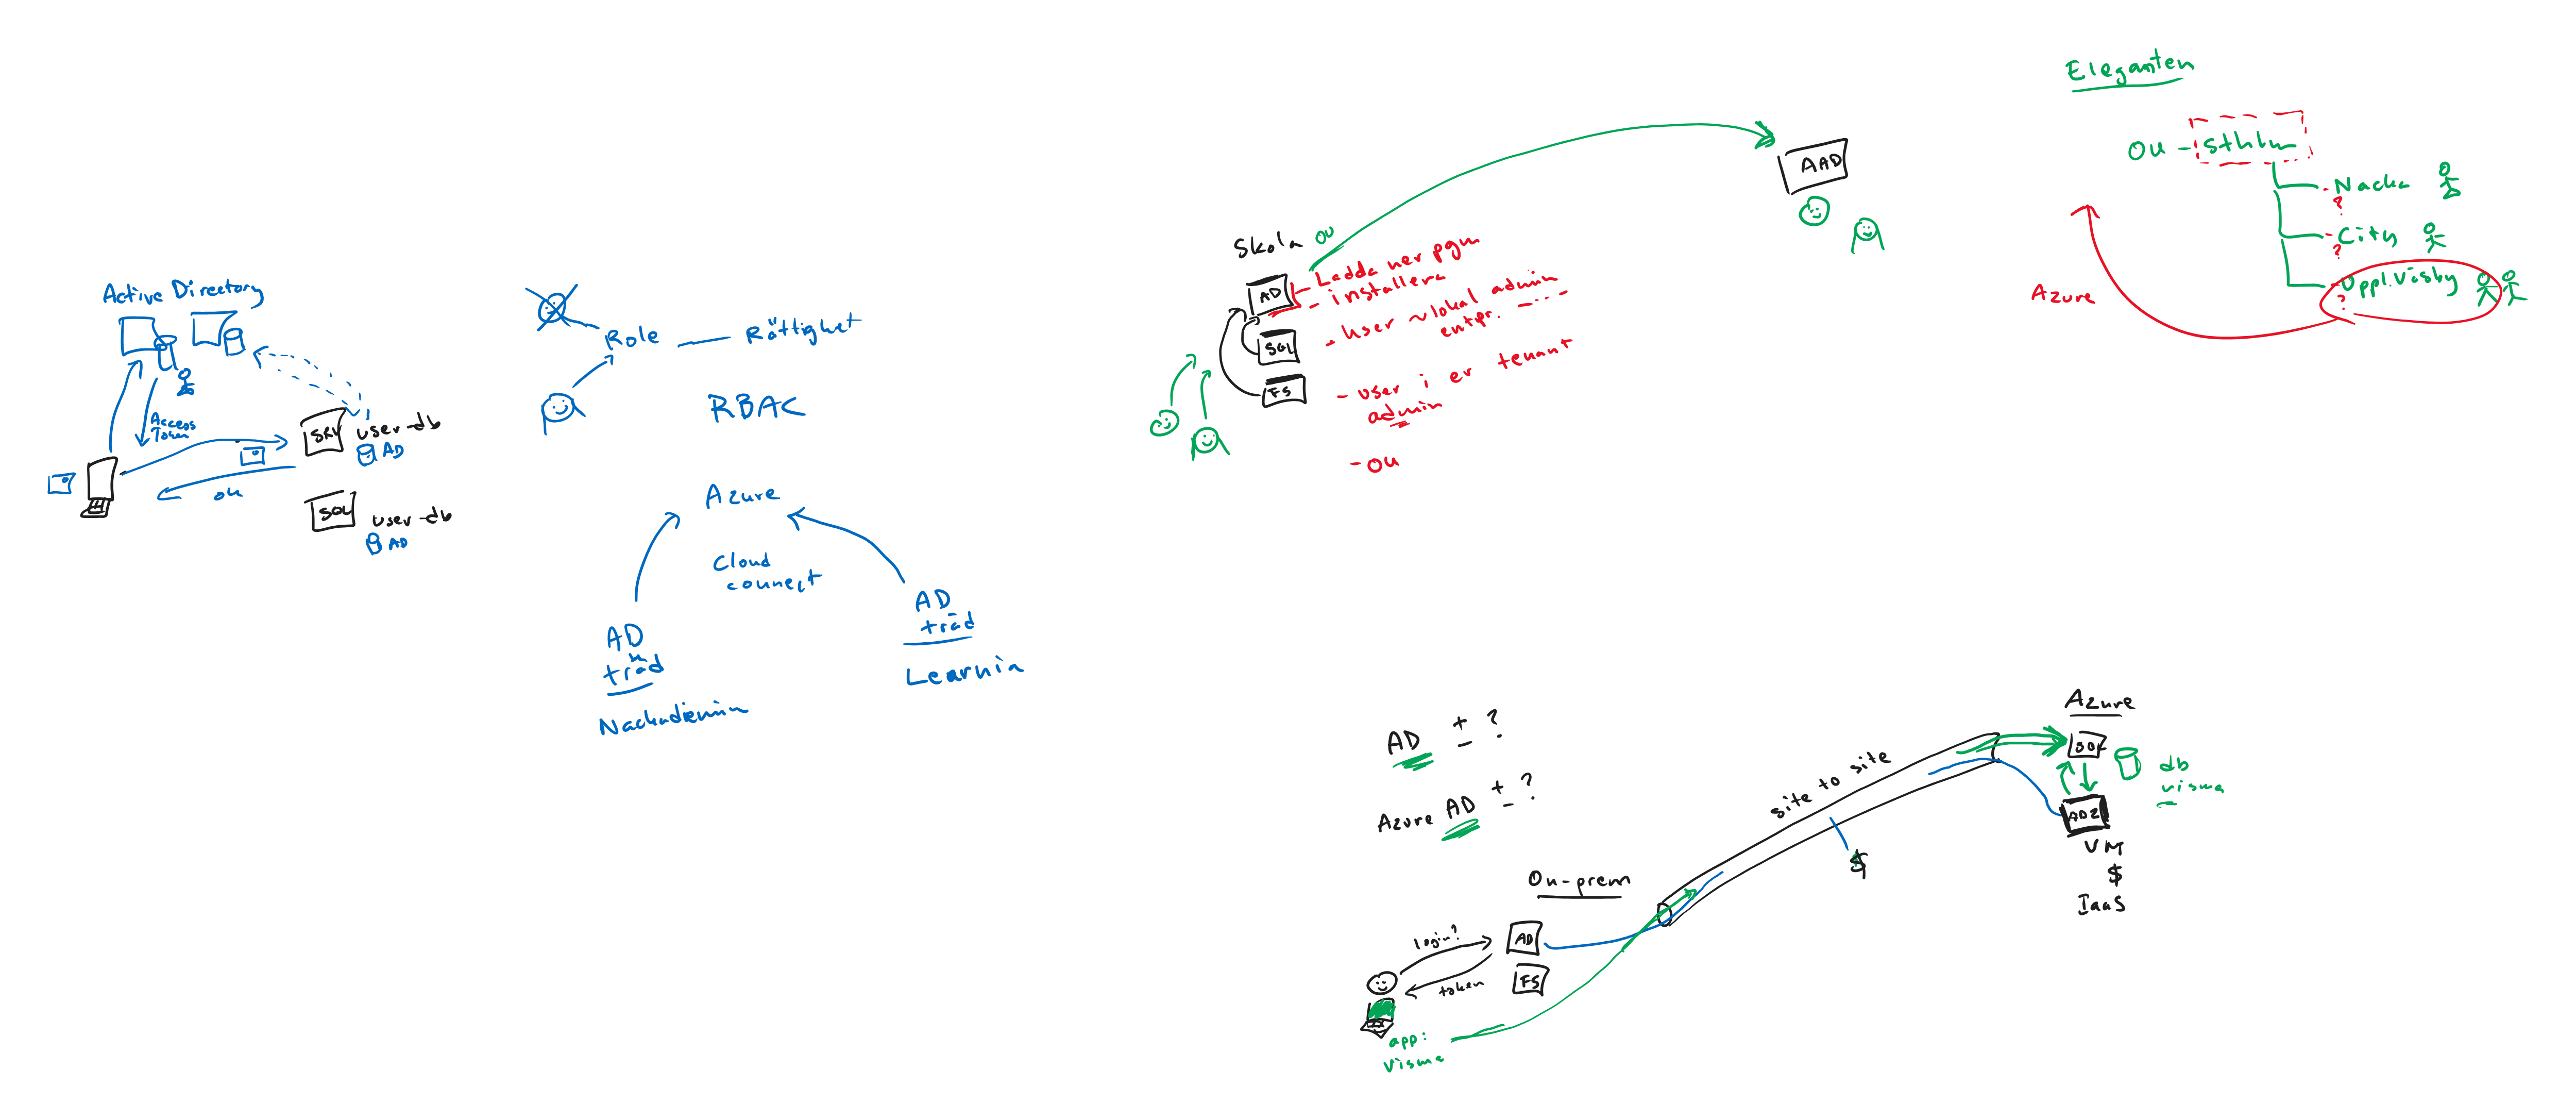 Active Directory
Access
Token
SRV
user-db
AD
ok
SQL
user-db
AD
Role
Rättighet
RBAC
Azure
Cloud
connect
AD
träd
AD
träd
Learnia
Skola
OU
AD
SQL
FS
- Ladda ner pgm
- installera
- user ~ lokal admin
entpr. - - -
- user i er tenant
admin
- OU
AAD
Eleganten
OU - Sthlm
- Nacka
?
- City
?
- Uppl. Väsby
?
Azure
AD ± ?
Azure AD ± ?
On-prem
login?
token
AD
FS
app:
visma
site to site
$
Azure
SQL
db
visma
AD2
VM
$
IaaS